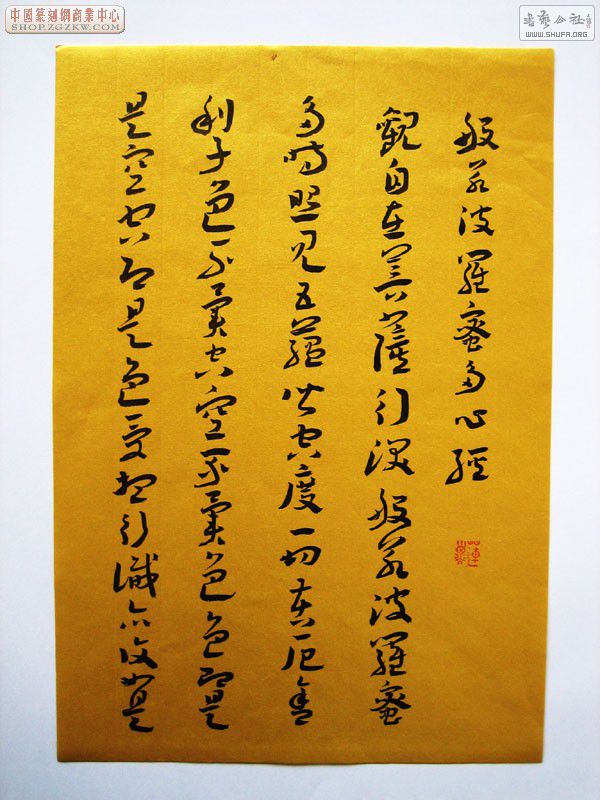 般若波羅蜜多心經
觀自在菩薩行深般若波羅蜜
多時照見五蘊皆空度一切苦厄舍
利子色不異空空不異色色即是
是空空即是色受想行識亦復如是
中國篆刻網商業中心
SHOP.ZGZKW.COM
书艺公社
WWW.SHUFA.ORG